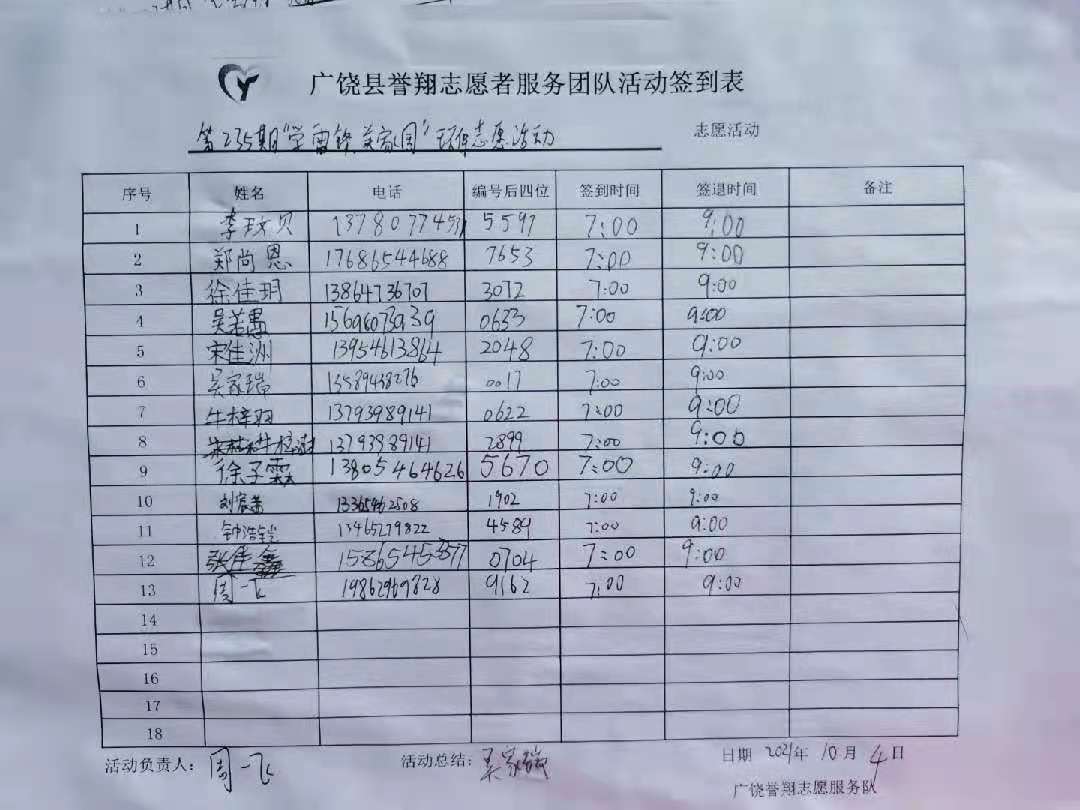 广饶县誉翔志愿者服务团队活动签到表
第235期"学雷锋 美家园"环保志愿活动 志愿活动
序号 姓名 电话 编号后四位 签到时间 签退时间 备注
1 李玫贝 5597 7:00 9:00
2 郑尚恩 17686544688 7653 7:00 9:00
3 徐佳玥 13864736707 3072 7:00 9:00
4 吴若愚 0633 7:00 9:00
5 宋佳洲 13954613864 2048 7:00 9:00
6 吴家瑞 13589438276 0017 7:00 9:00
7 牛梓羽 13793989141 0622 7:00 9:00
8 13793989141 2899 7:00 9:00
9 徐子霖 13805464626 5670 7:00 9:00
10 刘宸 13365462508 1902 7:00 9:00
11 钟浩铠 13465279822 4589 7:00 9:00
12 张佳鑫 0704 7:00 9:00
13 周一飞 19862969828 9162 7:00 9:00
14
15
16
17
18
活动负责人: 周一飞 活动总结: 吴家瑞 日期 2021年 10月 4日
广饶誉翔志愿服务队